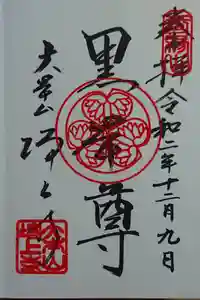 奉拝 令和二年十二月九日
黒本尊
大本山 増上寺